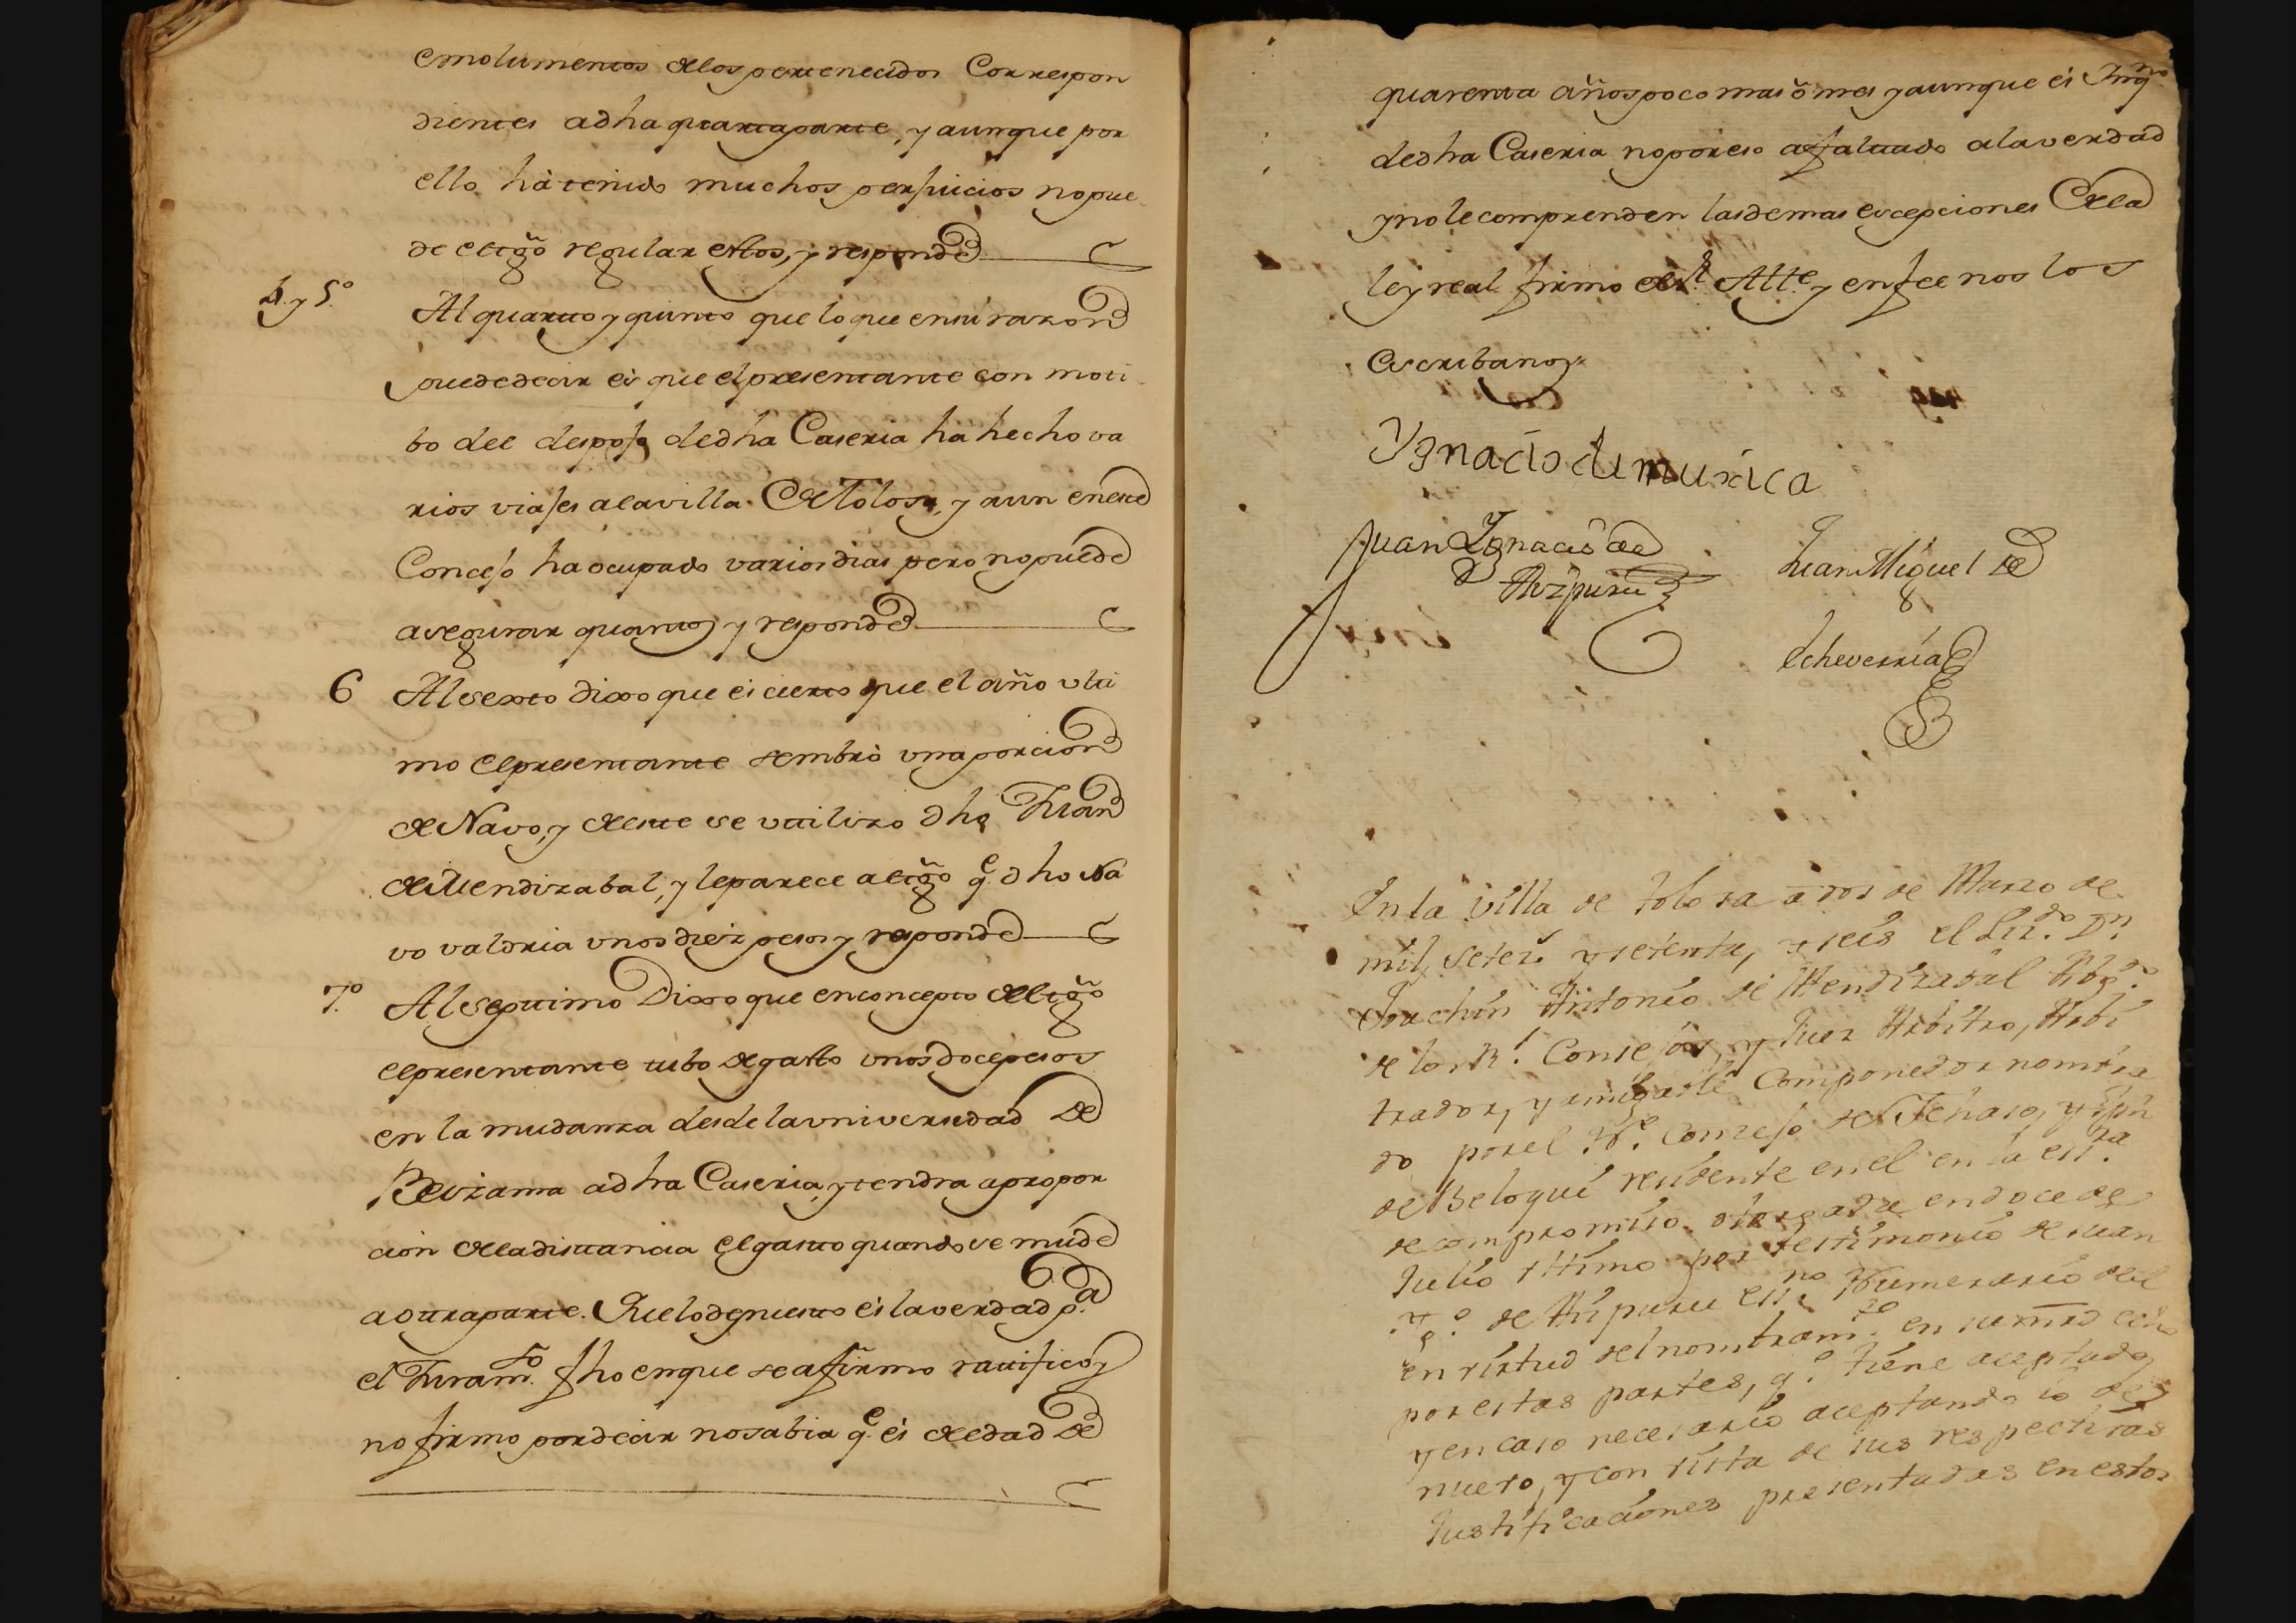 emolumentos delos pertenecidos Correspon
dientes adha quarta parte, y aunque por
ello hà tenido muchos perjuicios no pue
de el tgõ regular estos, y responde
4. y 5.º
Al quarto y quinto que lo que en su razon
puede decir es que el presentante con moti
bo del despojo dedha Caseria ha hecho va
rios viajes ala villa de Tolosa, y aun en este
Concejo ha ocupado varios dias pero no puede
asegurar quantos y responde
6
Al sexto dixo que es cierto que el año ulti
mo el presentante sembrò una porcion
de Navo, y de este se utilizo dho Juan
de Mendizabal, y le parece al tgõ q.e dho Na
vo valdria unos diez pesos y responde
7.º
Al septimo Dixo que en concepto del tgõ
el presentante tubo de gasto unos doce pesos
en la mudanza desde la universidad de
Beizama adha Caseria, y tendra apropor
cion dela distancia el gasto quando se mude
a otra parte. Que lo depuesto es la verdad p.a
el Juram.to fho en que se afirmo ratificó y
no firmo por decir no sabia q.e es de edad de
quarenta años poco mas ò mes y aunque es Inq.no
dedha Caseria no por eso a faltado ala verdad
y no le comprenden las demas excepciones dela
ley real firmo el s.r Alt.e y en fee nos los
escribanos
Ygnacio de muxica
Juan Ignacio de
Aizpuru
Juan Miguel de
Echeverria
En la villa de tolosa a dos de Marzo de
mil, setez.s y setenta, y seis el Liz.do D.n
Joachin Antonio de Mendizabal Abg.do
de los R.s Consejos, y Juez Arbitro, Arbi
trador, y amigable Componedor nombra
do por el N.e Concejo de
de Beloqui residente en el en la es.ra
de compromiso otorgada en doce de
Julio ultimo por testimonio de Juan
Ig.o de Aizpuru es.no Numerario del
en virtud del nombram.to en su mrd echo
por estas partes, q.e tiene aceptado,
y en caso necesario aceptando lo de
nuevo, y con vista de sus respectivas
Justificaciones presentadas en estos